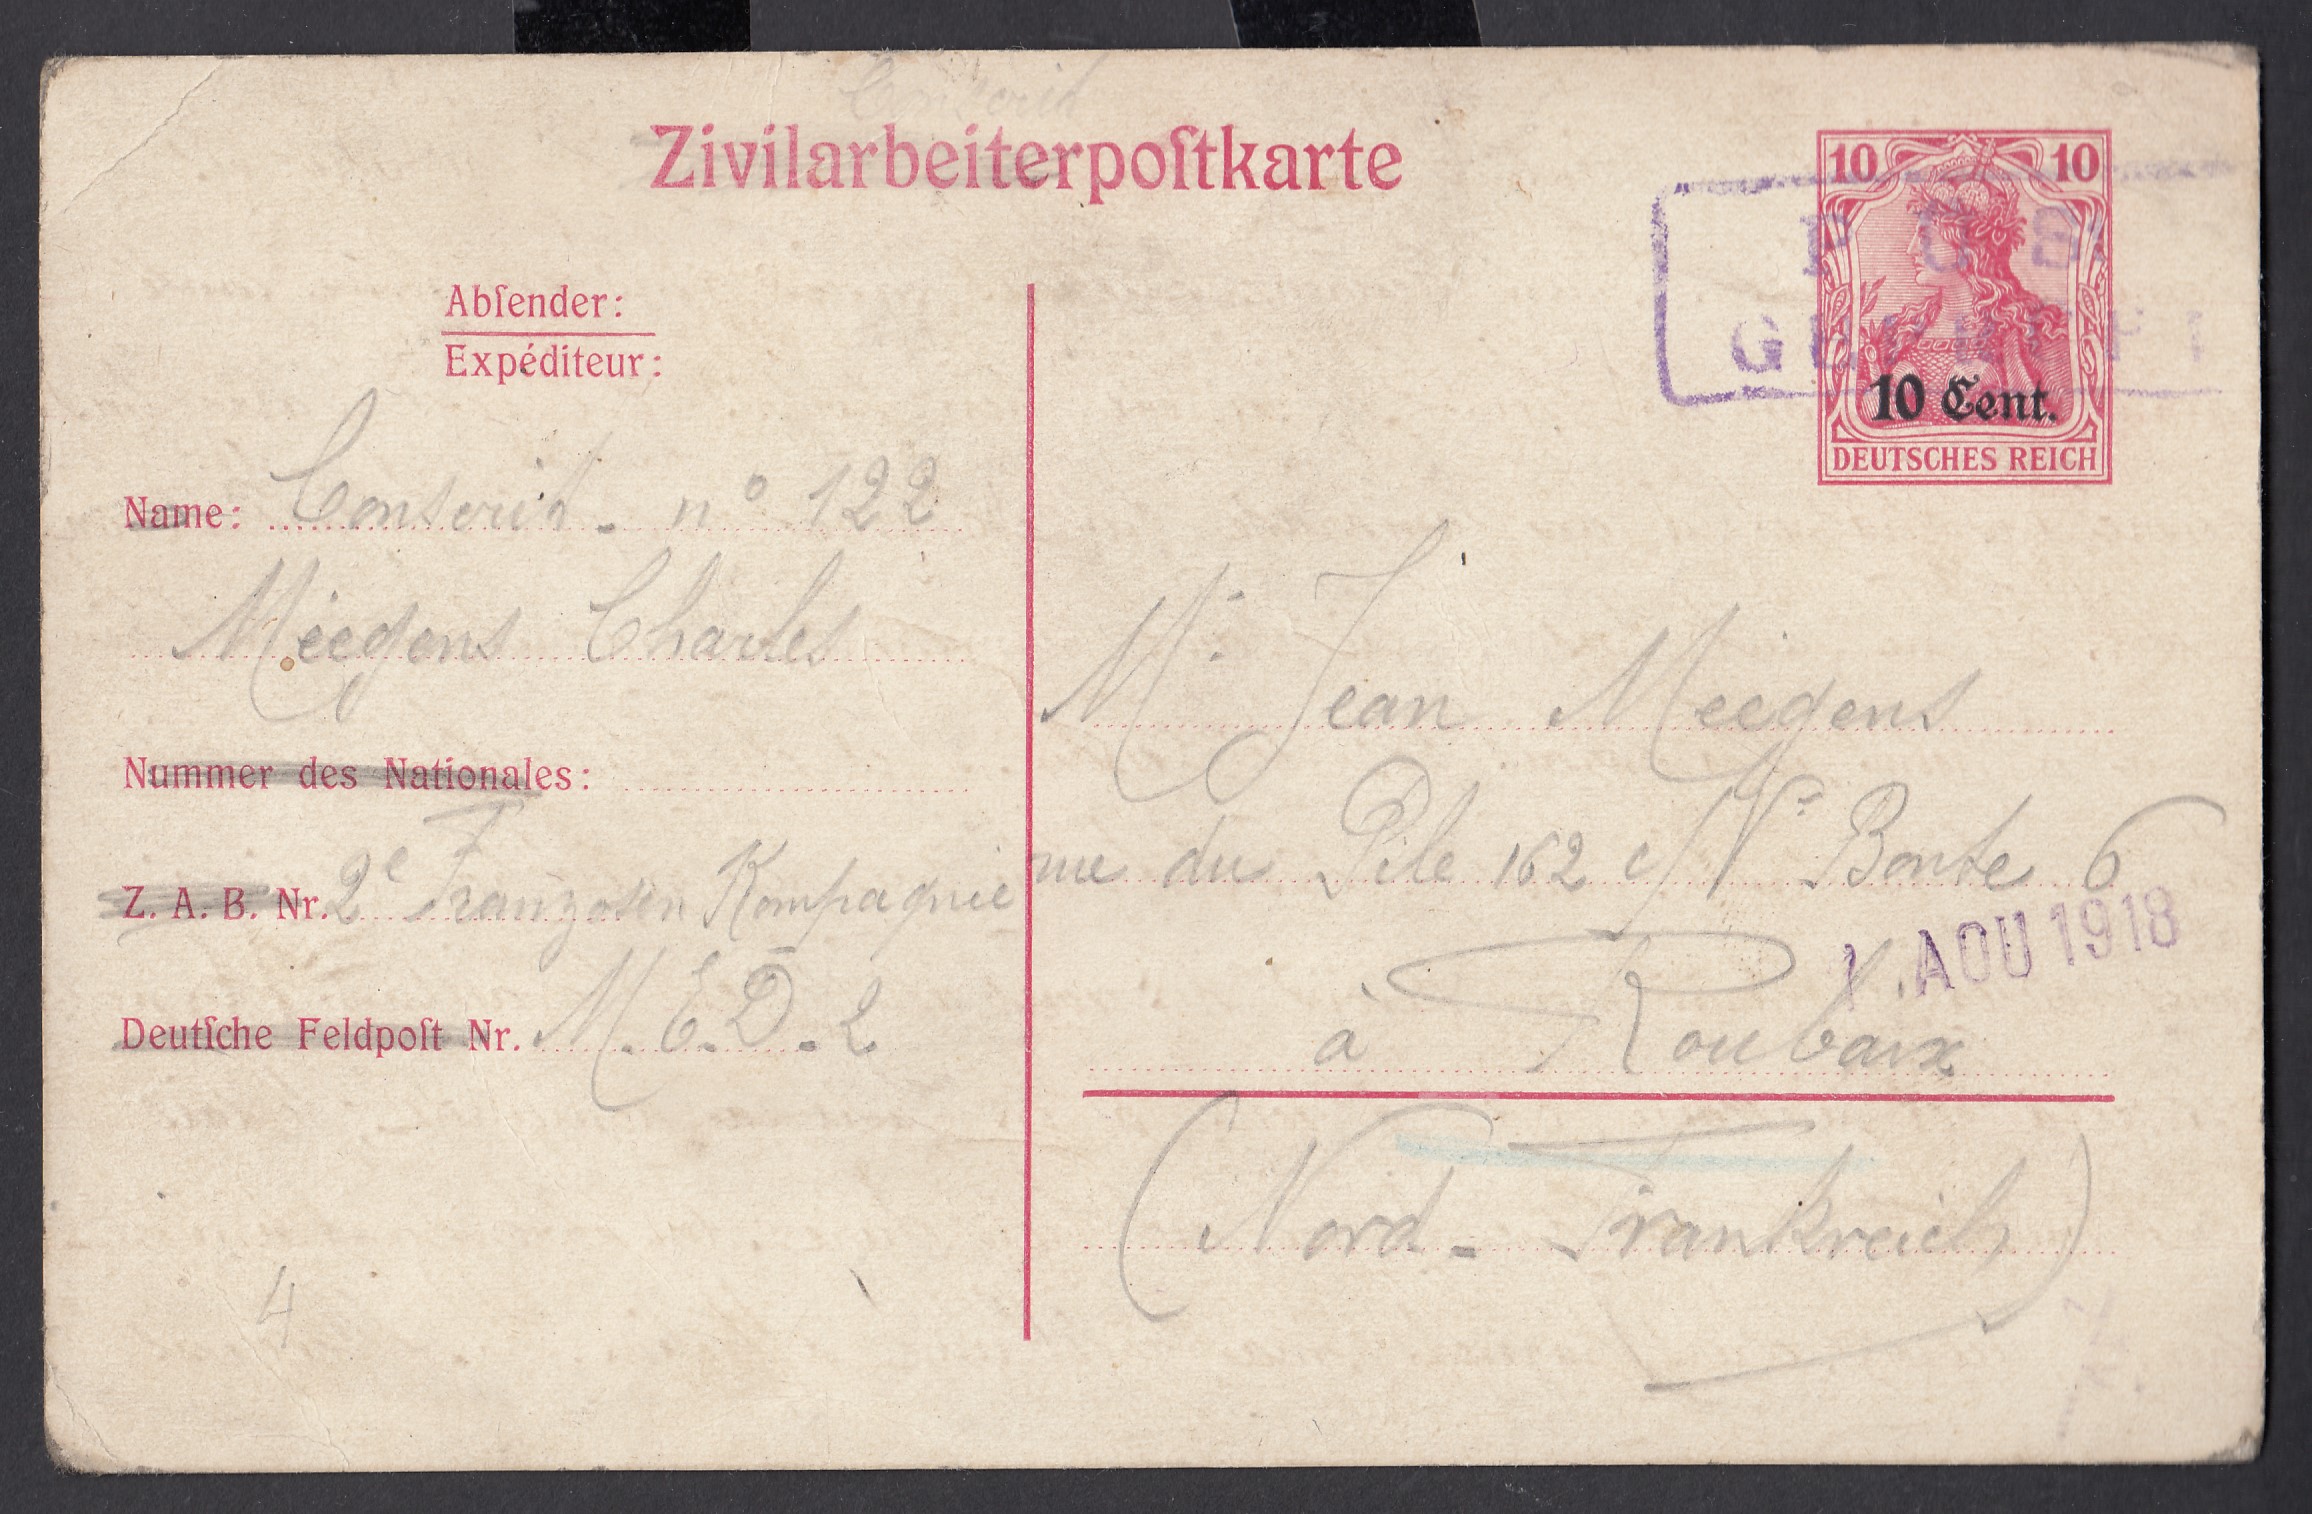 Conscrit
Zivilarbeiterpoſtkarte
10 10
10 Cent.
DEUTSCHES REICH
Abſender:
Expéditeur:
Name: Conscrit. n° 122
Meegens Charles
Nummer des Nationales:
Z. A. B. Nr. 2e Franzosen Kompagnie
Deutſche Feldpoſt Nr. M.E.D.2
4
Mr. Jean Meegens
rue du Pile 162 Bonte 6
1. AOU 1918
à Roubaix
(Nord-Frankreich)